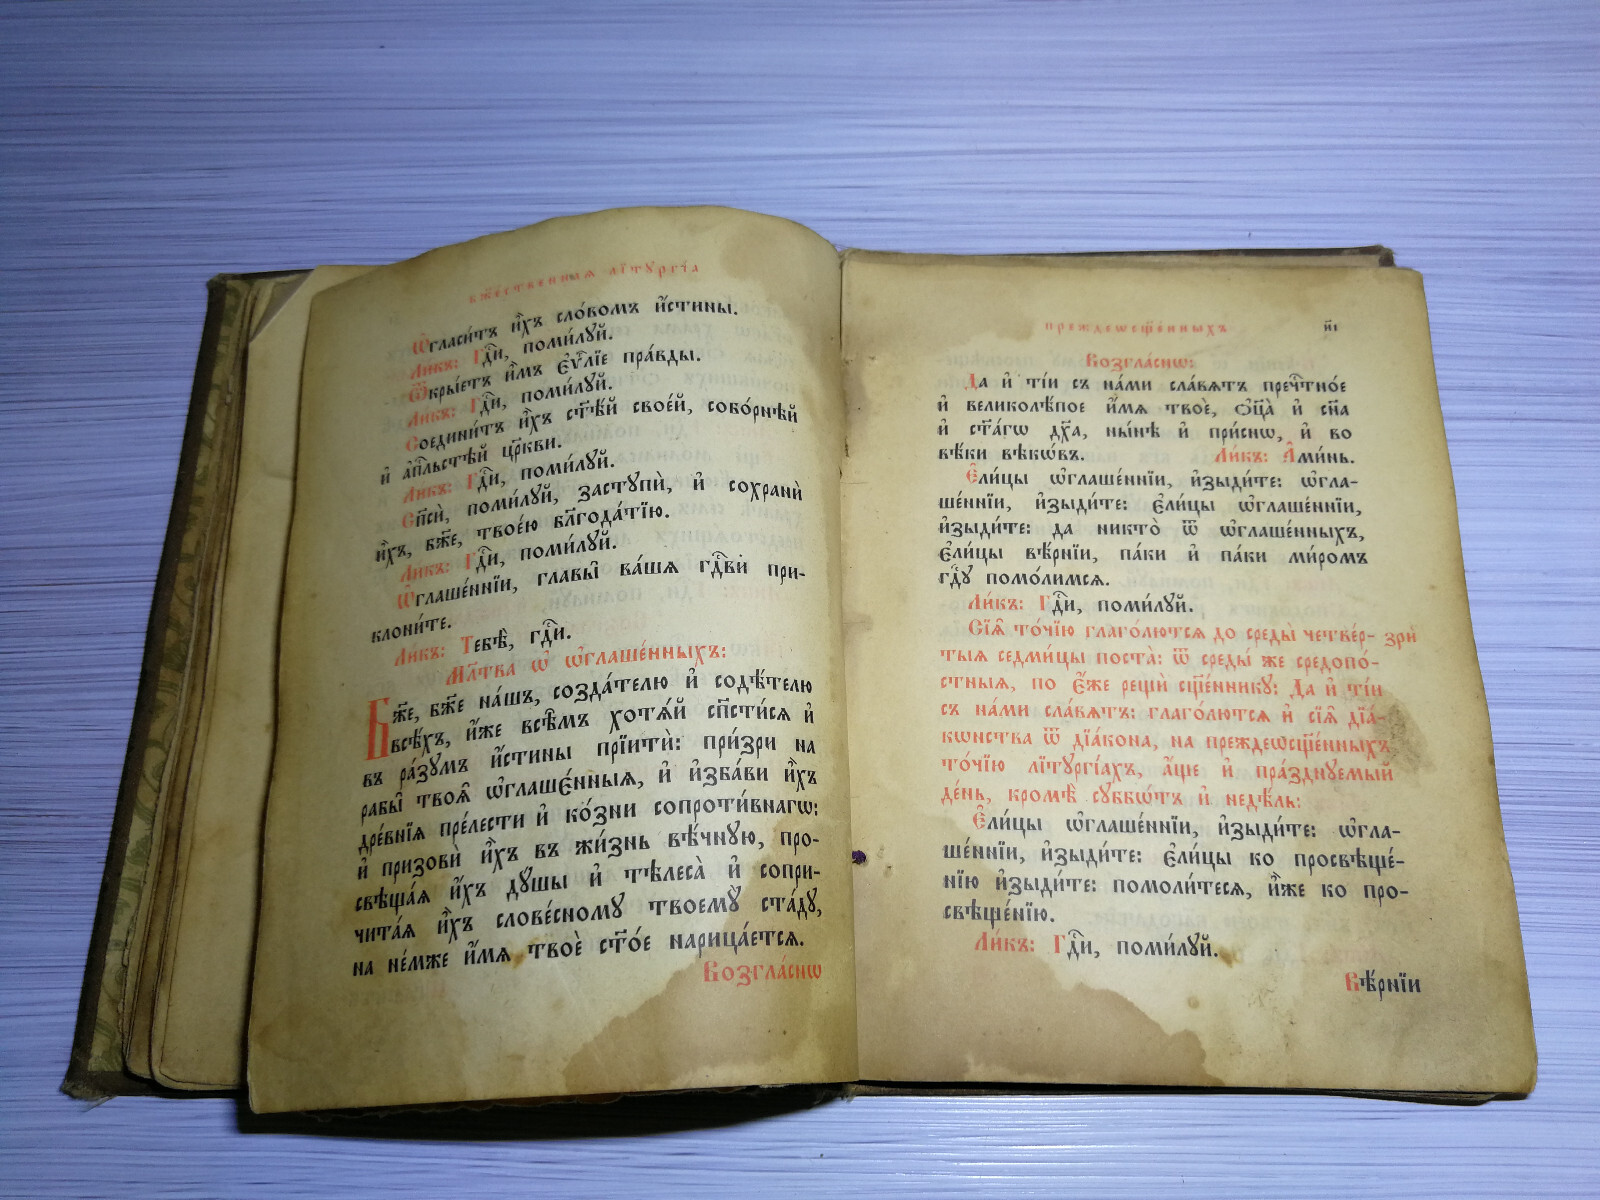 бж҃е́ственныѧ лїтꙋргі́а
Ѡ҆гласи́тъ и҆̀хъ сло́вомъ и҆́стины.
Ли́къ: Гдⷭ҇и, поми́лꙋй.
Ѿкры́етъ и҆̀мъ є҆ѵⷢ҇лїе пра́вды.
Ли́къ: Гдⷭ҇и, поми́лꙋй.
Соедини́тъ и҆̀хъ ст҃ѣ́й свое́й, собо́рнѣй
и҆ а҆пⷭ҇льстѣй цр҃кви.
Ли́къ: Гдⷭ҇и, поми́лꙋй.
Сп҃сѝ, поми́лꙋй, застꙋпѝ, и҆ сохранѝ
и҆̀хъ, бж҃е, твое́ю блгⷣода́тїю.
Ли́къ: Гдⷭ҇и, поми́лꙋй.
Ѡ҆глаше́ннїи, главы̑ ва́шѧ гдⷭ҇ви при-
клони́те.
Ли́къ: Тебѣ̀, гдⷭ҇и.
Мл҃тва ѡ҆ ѡ҆глаше́нныхъ:
Бж҃е, бж҃е на́шъ, созда́телю и҆ содѣ́телю
всѣ́хъ, и҆́же всѣ̑мъ хотѧ́й сп҃сти́сѧ и҆
въ ра́зꙋмъ и҆́стины прїитѝ: при́зри на
рабы̑ твоѧ̑ ѡ҆глаше́нныѧ, и҆ и҆зба́ви и҆̀хъ
дре́внїѧ пре́лести и҆ ко́зни сопроти́внагѡ:
и҆ призовѝ и҆̀хъ въ жи́знь вѣ́чнꙋю, про-
свѣща́ѧ и҆́хъ дꙋ́шы и҆ тѣлеса̀ и҆ сопри-
чита́ѧ и҆̀хъ слове́сномꙋ твоемꙋ̀ ста́дꙋ,
на не́мже и҆́мѧ твоѐ ст҃о́е нарица́етсѧ.
Возгла́снѡ
преждеѡсщ҃е́нныхъ
и҃і
Возгла́снѡ:
Да и҆ ті́и съ на́ми сла́вѧтъ пречⷭ҇тно́е
и҆ великолѣ́пое и҆́мѧ твоѐ, ѻ҆ц҃а̀ и҆ сн҃а
и҆ ст҃а́гѡ дх҃а, ны́нѣ и҆ при́снѡ, и҆ во
вѣ́ки вѣкѡ́въ. Ли́къ: А҆ми́нь.
Е҆ли́цы ѡ҆глаше́ннїи, и҆зыди́те: ѡ҆гла-
ше́ннїи, и҆зыди́те: є҆ли́цы ѡ҆глаше́ннїи,
и҆зыди́те: да никто̀ ѿ ѡ҆глаше́нныхъ,
є҆ли́цы вѣ́рнїи, па́ки и҆ па́ки ми́ромъ
гдⷭ҇ꙋ помо́лимсѧ.
Ли́къ: Гдⷭ҇и, поми́лꙋй.
Сїѧ̑ то́чїю глаго́лютсѧ до среды̀ четве́р- зрѝ
тыѧ седми́цы поста̀: ѿ среды́ же средопо́-
стныѧ, по є҆́же рещѝ сщ҃е́нникꙋ: Да и҆ ті́и
съ на́ми сла́вѧтъ: глаго́лютсѧ и҆ сїѧ̑ дїа́-
кѡнства ѿ дїа́кона, на преждеѡсщ҃е́нныхъ
то́чїю лїтꙋргі́ахъ, а҆́ще и҆ пра́зднꙋемый
де́нь, кромѣ̀ сꙋббѡ́тъ и҆ недѣ́ль:
Е҆ли́цы ѡ҆глаше́ннїи, и҆зыди́те: ѡ҆гла-
ше́ннїи, и҆зыди́те: є҆ли́цы ко просвѣще́-
нїю и҆зыди́те: помоли́тесѧ, и҆̀же ко про-
свѣще́нїю.
Ли́къ: Гдⷭ҇и, поми́лꙋй.
Вѣ́рнїи